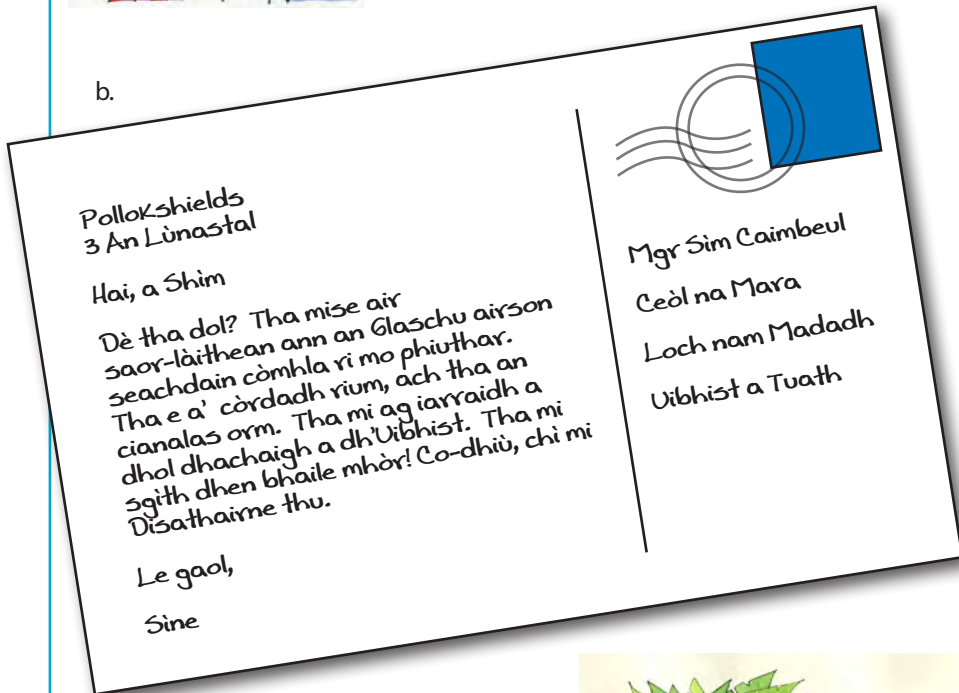 b.
Pollokshields
3 An Lùnastal
Hai, a Shìm
Dè tha dol? Tha mise air
saor-làithean ann an Glaschu airson
seachdain còmhla ri mo phiuthar.
Tha e a' còrdadh rium, ach tha an
cianalas orm. Tha mi ag iarraidh a
dhol dhachaigh a dh'Uibhist. Tha mi
sgìth dhen bhaile mhòr! Co-dhiù, chì mi
Disathairne thu.
Le gaol,
Sìne
Mgr Sìm Caimbeul
Ceòl na Mara
Loch nam Madadh
Uibhist a Tuath